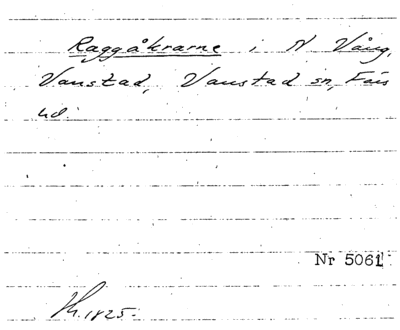 Raggåkrarne i N Vång,
Vanstad, Vanstad sn, Färs
hd.
Nr 5061
1825.